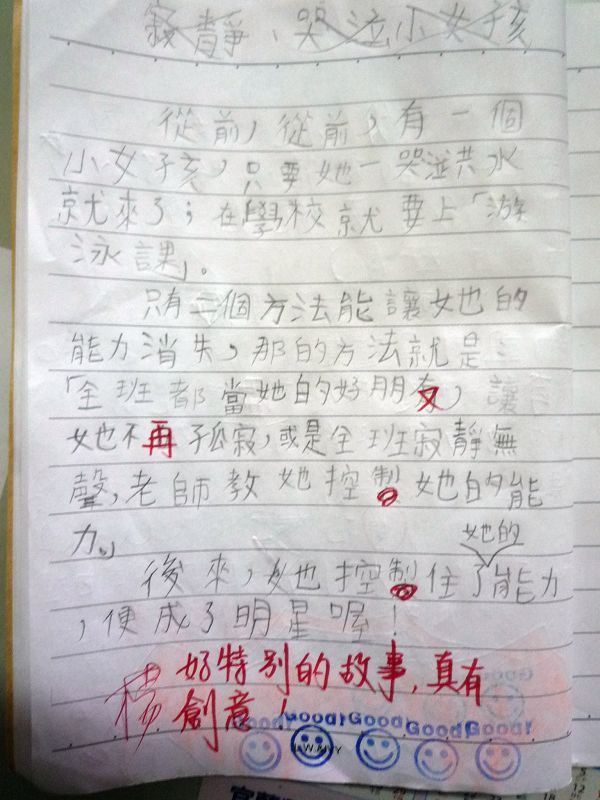 寂靜、哭泣小女孩
從前，從前，有一個
小女孩，只要她一哭泣洪水
就來了；在學校就要上「游
泳課」。
只有二個方法能讓她的
能力消失，那的方法就是：
「全班都當她的好朋友，讓
她不再孤寂，或是全班寂靜無
聲，老師教她控制她的能
力。」
她的
後來，她控制住了能力
，便成了明星喔！
好特別的故事，真有
創意！
楊
Good! Good! Good! Good!